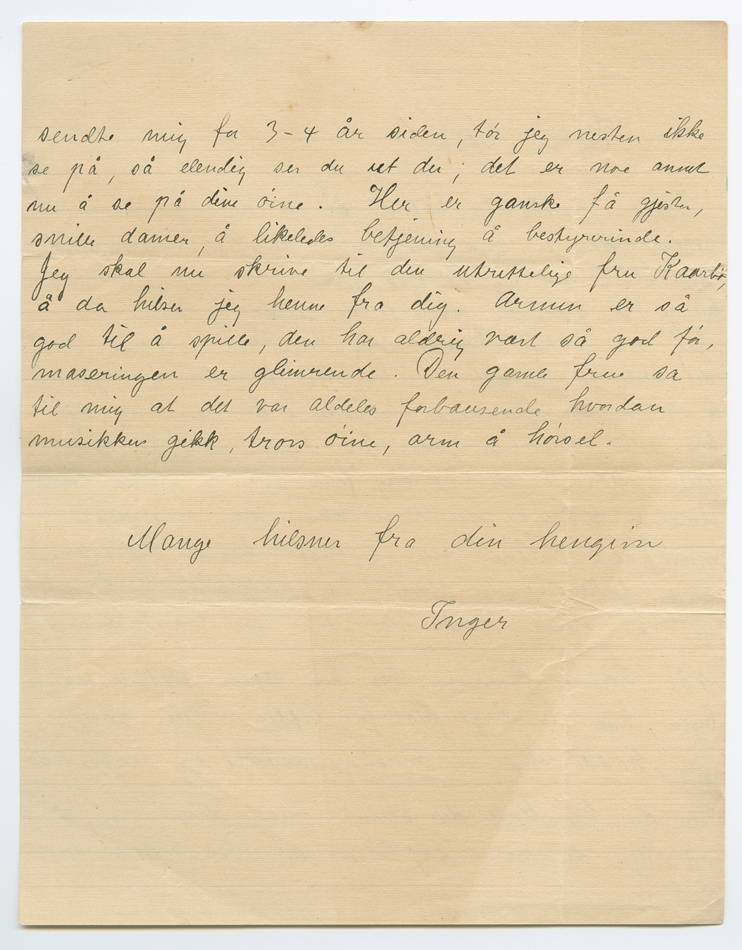 sendte mig for 3-4 år siden, tør jeg nesten ikke
se på, så elendig ser du ut der; det er noe annet
nu å se på dine öine. Her er ganske få gjester,
snille damer, å likeledes betjening å bestyrerinde.
Jeg skal nu skrive til den utrettelige fru
å da hilser jeg henne fra dig. Armen er så
god til å spille, den har aldrig vært så god før,
maseringen er glimrende. Den gamle frue sa
til mig at det var aldeles forbausende hvordan
musikken gikk, tross öine, arm å hörsel.
Mange hilsner fra din hengivn
Inger